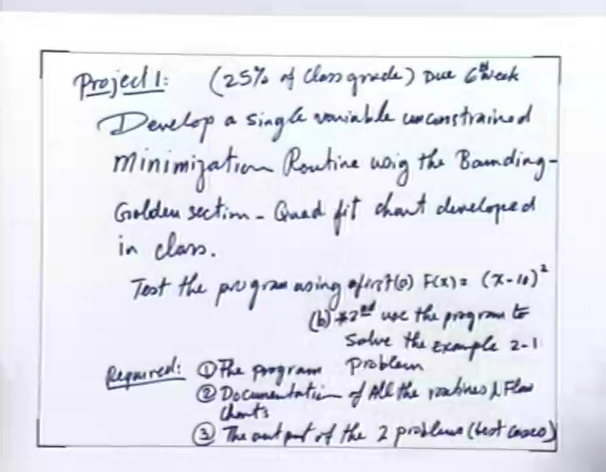 Project 1: (25% of Class grade) Due 6th Week
Develop a single variable unconstrained
Minimization Routine using the Bounding-
Golden section - Quad fit chart developed
in class.
Test the program using first (a) F(x) = (x-10)²
(b) *2nd use the program to
Solve the Example 2-1
Problem
Required: ① The program
② Documentation of All the routines & Flow
charts
③ The output of the 2 problems (test cases)